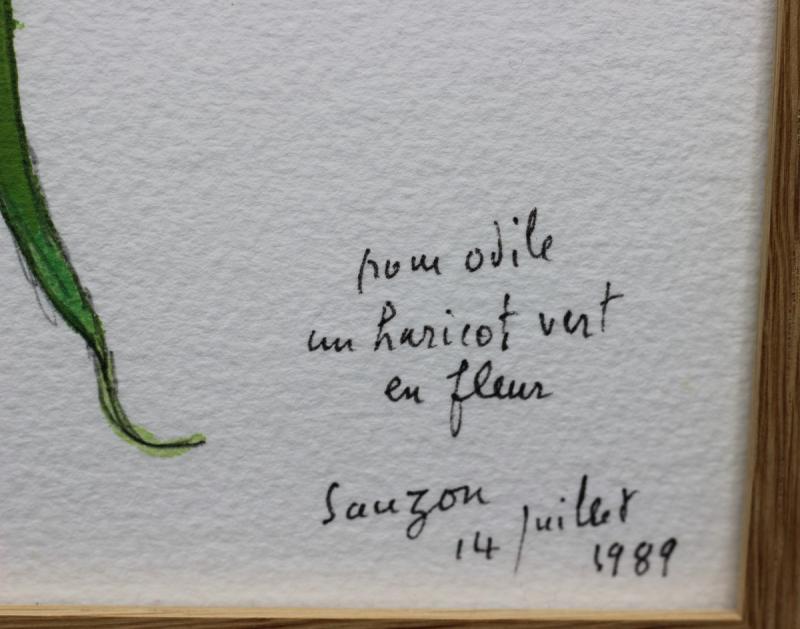 pour odile
un haricot vert
en fleur
Sauzon
14 juillet
1989